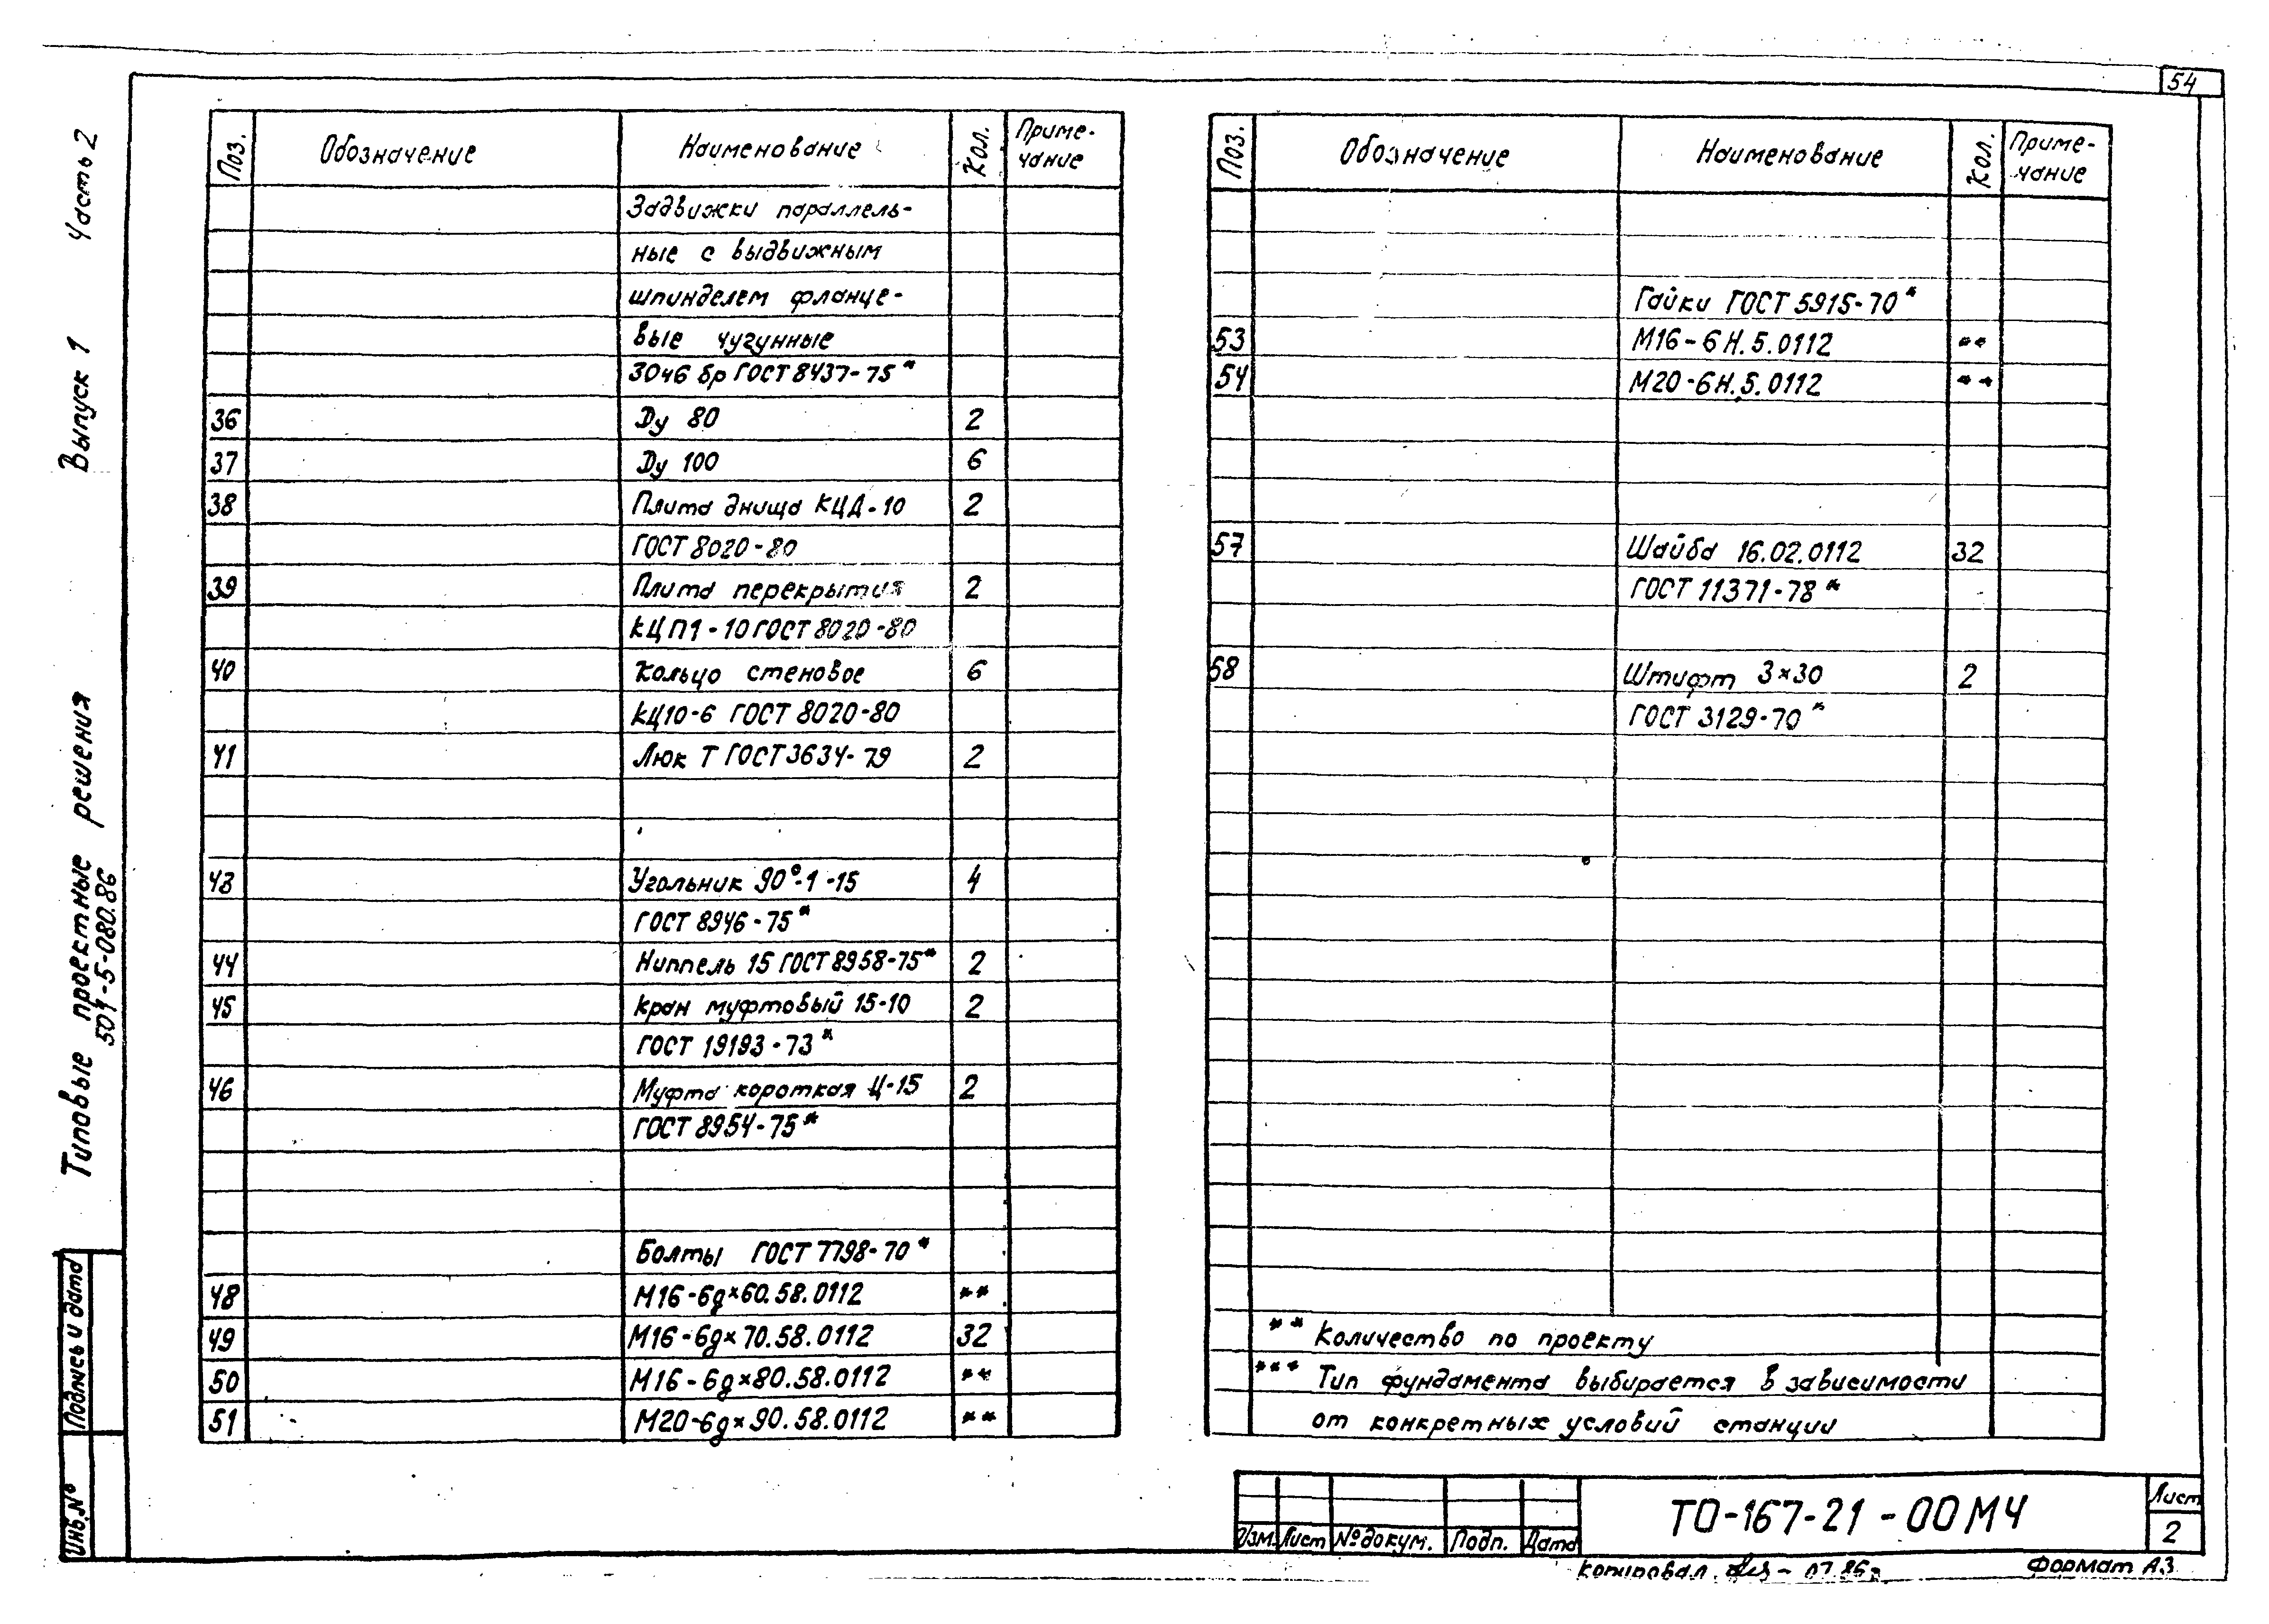 54
Часть 2
Выпуск 1
Типовые проектные решения
501-5-080.86
Подпись и дата
Инв.№
Поз. Обозначение Наименование Кол. Приме-
чание
Задвижки параллель-
ные с выдвижным
шпинделем фланце-
вые чугунные
30ч6 бр ГОСТ 8437-75*
36 Ду 80 2
37 Ду 100 6
38 Плита днища КЦД-10 2
ГОСТ 8020-80
39 Плита перекрытия 2
КЦП1-10 ГОСТ 8020-80
40 Кольцо стеновое 6
КЦ10-6 ГОСТ 8020-80
41 Люк Т ГОСТ 3634-79 2
43 Угольник 90°-1-15 4
ГОСТ 8946-75*
44 Ниппель 15 ГОСТ 8958-75* 2
45 Кран муфтовый 15-10 2
ГОСТ 19193-73*
46 Муфта короткая Ц-15 2
ГОСТ 8954-75*
Болты ГОСТ 7798-70*
48 М16-6g×60.58.0112 **
49 М16-6g×70.58.0112 32
50 М16-6g×80.58.0112 **
51 М20-6g×90.58.0112 **
Поз. Обозначение Наименование Кол. Приме-
чание
Гайки ГОСТ 5915-70*
53 М16-6Н.5.0112 **
54 М20-6Н.5.0112 **
57 Шайба 16.02.0112 32
ГОСТ 11371-78*
58 Штифт 3×30 2
ГОСТ 3129-70*
** Количество по проекту
*** Тип фундамента выбирается в зависимости
от конкретных условий станции
Изм. Лист №докум. Подп. Дата
ТО-167-21-00МЧ
Лист
2
Копировал 07.86г
Формат А3